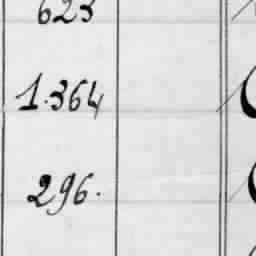 623
1.364
296.